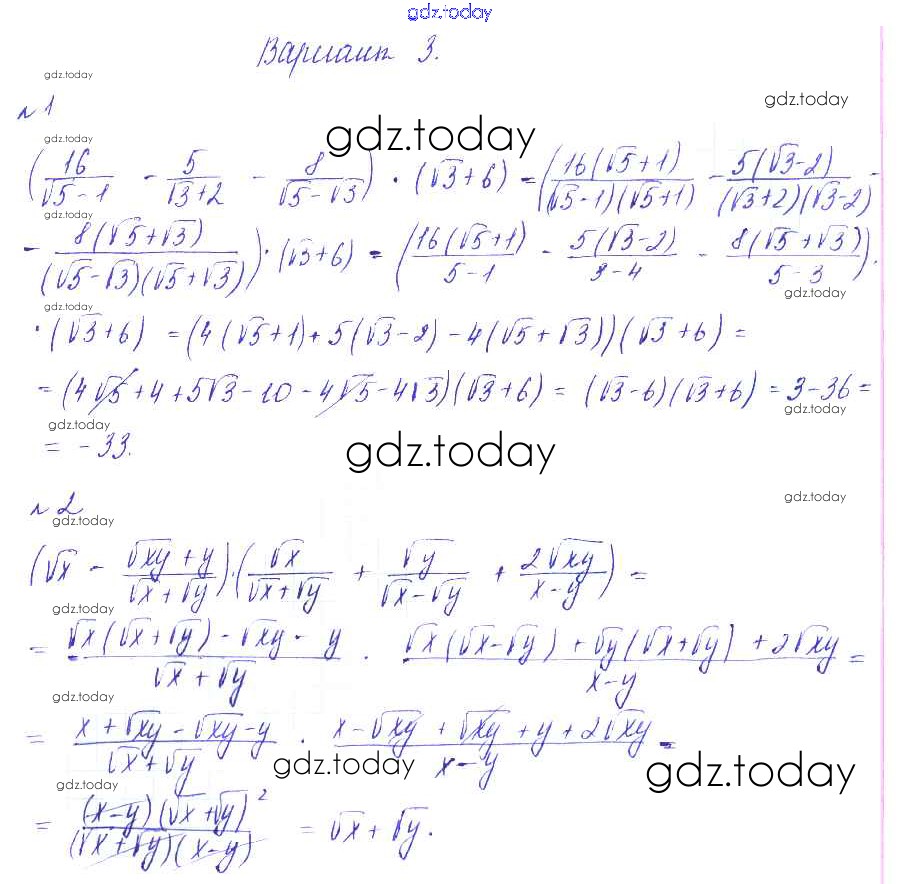 gdz.today
Вариант 3.
gdz.today
gdz.today
№1
gdz.today
gdz.today
(16/(√5-1) - 5/(√3+2) - 8/(√5-√3)) · (√3+6) = (16(√5+1)/((√5-1)(√5+1)) - 5(√3-2)/((√3+2)(√3-2)) -
gdz.today
- 8(√5+√3)/((√5-√3)(√5+√3))) · (√3+6) = (16(√5+1)/(5-1) - 5(√3-2)/(3-4) - 8(√5+√3)/(5-3)) ·
gdz.today
gdz.today
· (√3+6) = (4(√5+1)+5(√3-2)-4(√5+√3))(√3+6) =
gdz.today
= (4√5+4+5√3-10-4√5-4√3)(√3+6) = (√3-6)(√3+6) = 3-36 =
gdz.today
gdz.today
= -33.
gdz.today
gdz.today
№2
gdz.today
(√x - (√xy+y)/(√x+√y)) · (√x/(√x+√y) + √y/(√x-√y) + 2√xy/(x-y)) =
gdz.today
gdz.today
= (√x(√x+√y)-√xy-y)/(√x+√y) · (√x(√x-√y)+√y(√x+√y)+2√xy)/(x-y) =
gdz.today
= (x+√xy-√xy-y)/(√x+√y) · (x-√xy+√xy+y+2√xy)/(x-y) =
gdz.today
gdz.today
gdz.today
= (x-y)(√x+√y)²/((√x+√y)(x-y)) = √x+√y.